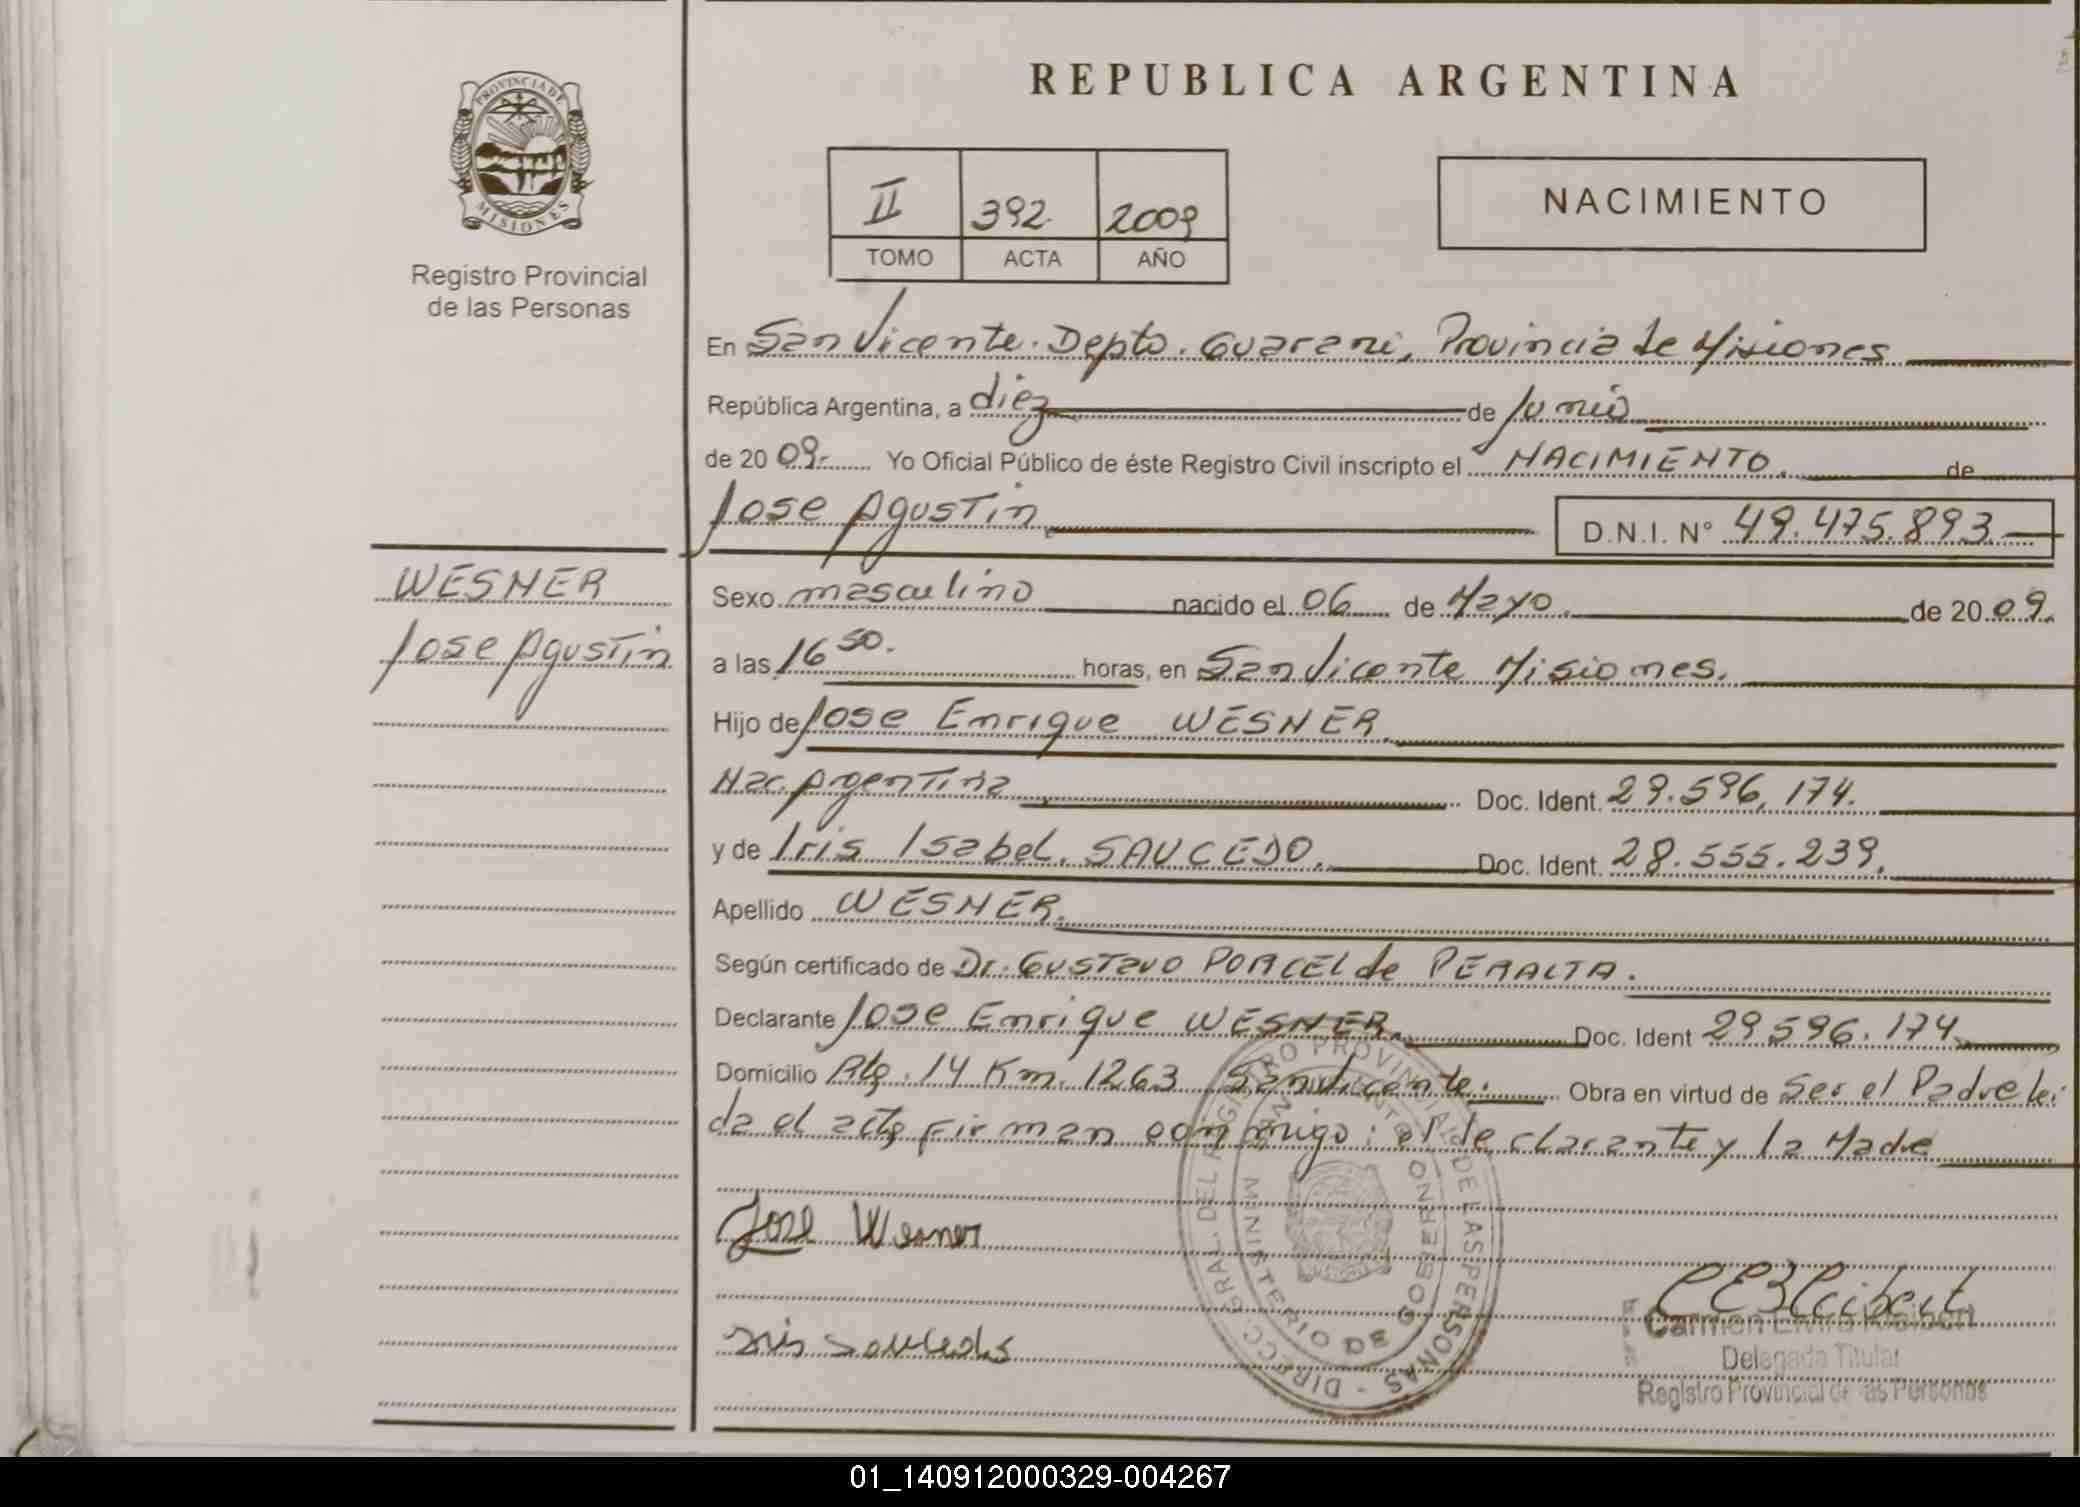 PROVINCIA DE
MISIONES
Registro Provincial
de las Personas
REPUBLICA ARGENTINA
II 392 2009
TOMO ACTA AÑO
NACIMIENTO
En San Vicente. Depto. Guarani, Provincia de Misiones
República Argentina, a diez de Junio
de 20 09 Yo Oficial Público de éste Registro Civil inscripto el NACIMIENTO. de
Jose Agustin D.N.I. N° 49.475.893
WESNER
Jose Agustin
Sexo masculino nacido el 06 de Mayo. de 20 09.
a las 16 50. horas, en San Vicente Misiones.
Hijo de Jose Enrique WESNER.
Nac. Argentina Doc. Ident. 29.596.174.
y de Iris Isabel. SAUCEDO. Doc. Ident. 28.555.239.
Apellido WESNER.
Según certificado de Dr. Gustavo PORCEL de PERALTA.
Declarante Jose Enrique WESNER. Doc. Ident 29.596.174
Domicilio Rta. 14 Km. 1263 San Vicente. Obra en virtud de Ser el Padre lei
da el acta firman conmigo: el declarante y la Madre
Jose Wesner
Iris Saucedo
DIRECC. GRAL. DEL REGISTRO PROVINCIAL DE LAS PERSONAS
MINISTERIO DE GOBIERNO
SAN VICENTE
Carmen Elvira Kleibert
Delegada Titular
Registro Provincial de las Personas
01_140912000329-004267